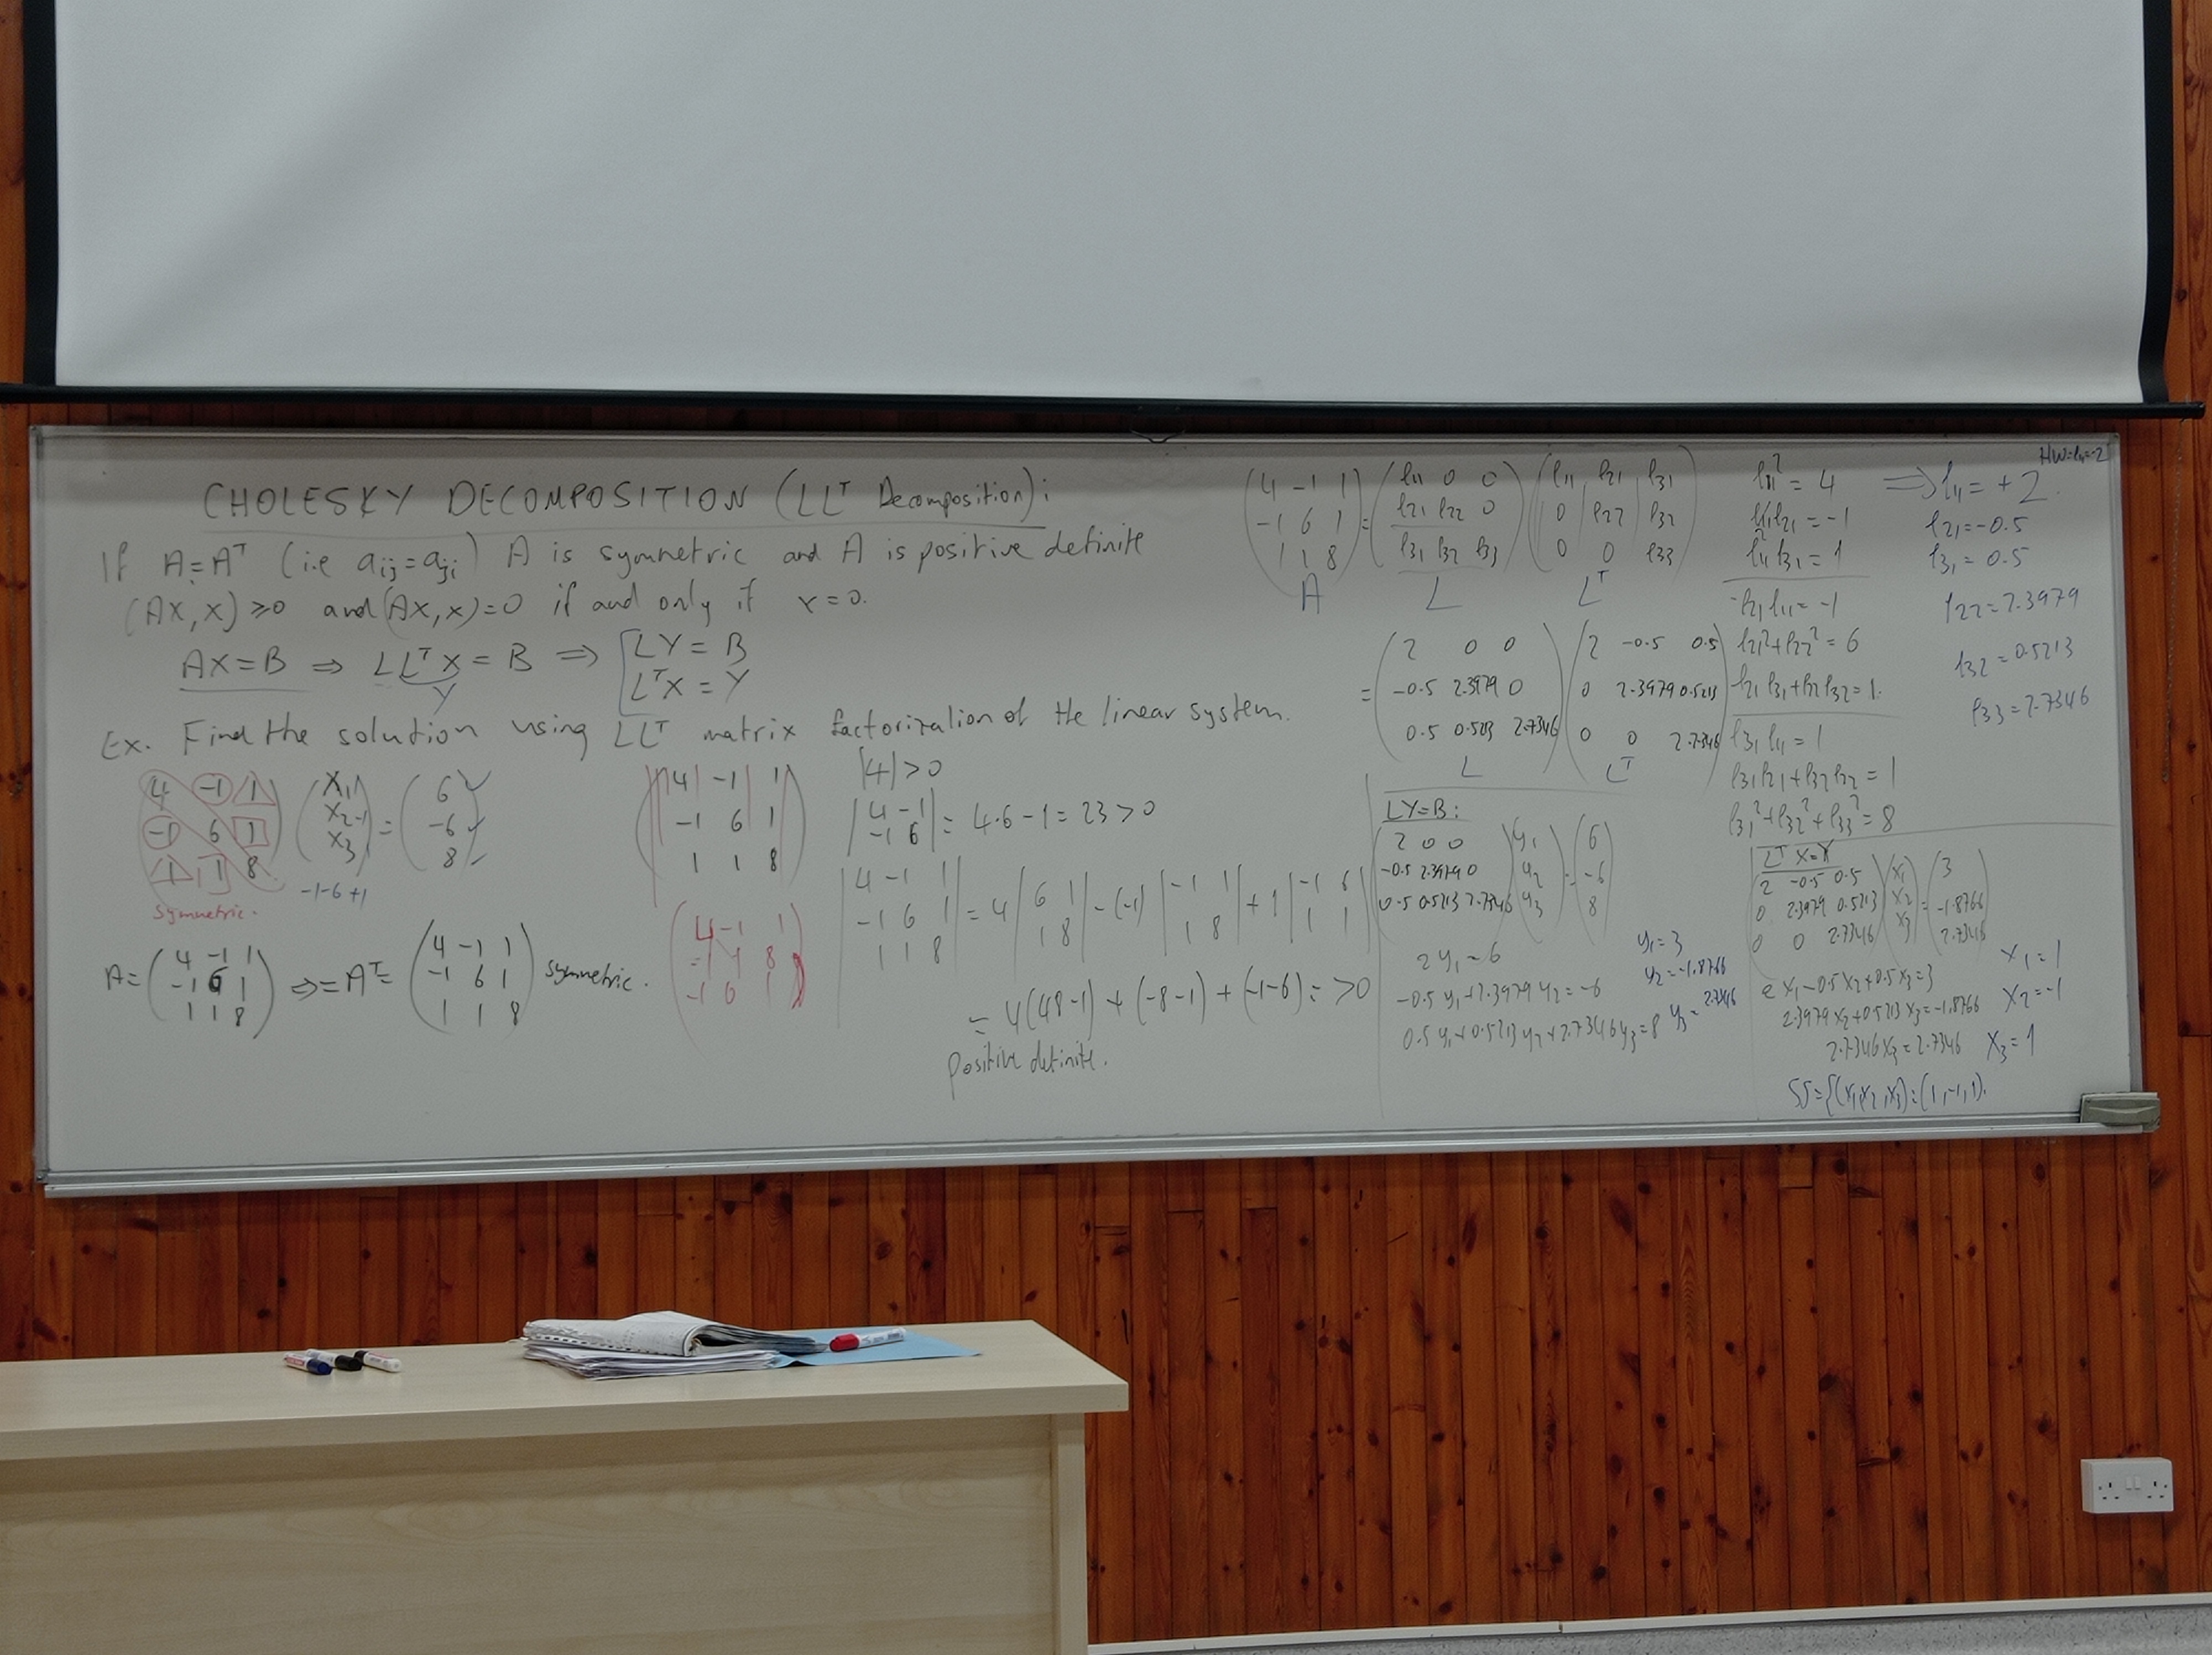 CHOLESKY DECOMPOSITION (LLᵀ Decomposition):
If A=Aᵀ (i.e aij=aji) A is symmetric and A is positive definite
(AX,X)≥0 and (AX,x)=0 if and only if x=0.
AX=B ⇒ LLᵀX=B ⇒ [LY=B
Y LᵀX=Y
Ex. Find the solution using LLᵀ matrix factorization of the linear system.
4 -1 1 (x1) (6
-1 6 1 x2 = -6
1 1 8 x3 8)
-1-6+1
symmetric.
A=(4 -1 1
-1 6 1
1 1 8) ⇒ =Aᵀ= (4 -1 1
-1 6 1
1 1 8) symmetric.
(4 -1 1
-1 6 1
1 1 8)
|4|>0
|4 -1
-1 6| = 4·6-1=23>0
|4 -1 1
-1 6 1
1 1 8| = 4 |6 1
1 8| -(-1) |-1 1
1 8| +1 |-1 6
1 1|
= 4(48-1)+(-8-1)+(-1-6)= >0
positive definite.
(4 -1 1
-1 6 1
1 1 8) = (l11 0 0
l21 l22 0
l31 l32 l33) (l11 l21 l31
0 l22 l32
0 0 l33)
A L Lᵀ
= (2 0 0
-0.5 2.3979 0
0.5 0.5213 2.7346) (2 -0.5 0.5
0 2.3979 0.5213
0 0 2.7346)
L Lᵀ
HW=l11=-2
l11²=4 ⇒ l11=+2.
l11l21=-1 l21=-0.5
l11l31=1 l31=0.5
l21l11=-1 l22=2.3979
l21²+l22²=6
l21l31+l22l32=1. l32=0.5213
l31l11=1 l33=2.7346
l31l21+l32l22=1
l31²+l32²+l33²=8
LY=B:
(2 0 0
-0.5 2.3979 0
0.5 0.5213 2.7346) (y1
y2
y3) = (6
-6
8)
2y1=6 y1=3
-0.5y1+2.3979y2=-6 y2=-1.8766
0.5y1+0.5213y2+2.7346y3=8 y3=2.7346
LᵀX=Y
(2 -0.5 0.5
0 2.3979 0.5213
0 0 2.7346) (x1
x2
x3) = (3
-1.8766
2.7346)
2x1-0.5x2+0.5x3=3 x1=1
2.3979x2+0.5213x3=-1.8766 x2=-1
2.7346x3=2.7346 x3=1
SS={(x1,x2,x3)=(1,-1,1).